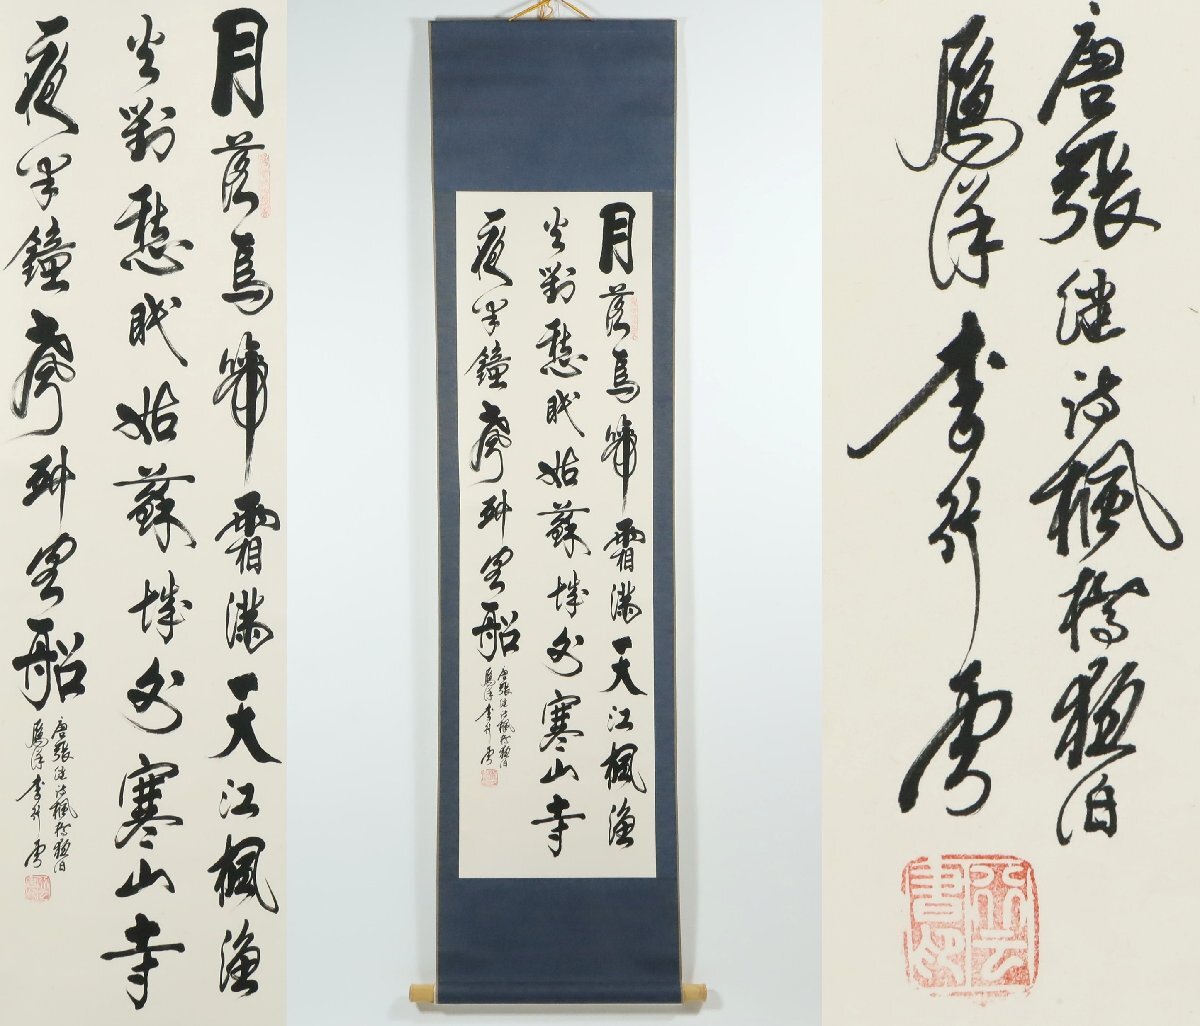 月落烏啼霜滿天江楓漁
火對愁眠姑蘇城外寒山寺
夜半鐘聲到客船
唐張继詩楓橋夜泊
鴈洋李雲
月落烏啼霜滿天江楓漁
火對愁眠姑蘇城外寒山寺
夜半鐘聲到客船
唐張继詩楓橋夜泊
鴈洋李雲
唐張继詩楓橋夜泊
鴈洋李雲
云書印